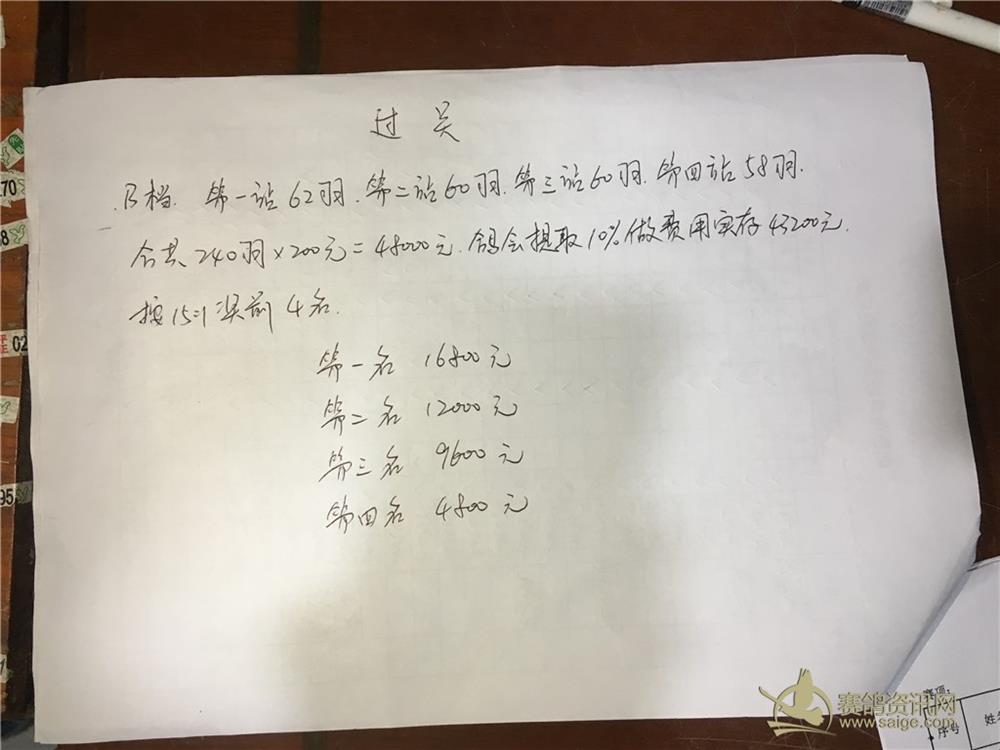 过关
B档. 第一站62羽. 第二站60羽. 第三站60羽. 第四站58羽.
合共240羽×200元=48000元. 鸽会提取10%做费用实存43200元.
按15:1奖前4名.
第一名 16800元
第二名 12000元
第三名 9600元
第四名 4800元
70
8
02
95
序号
姓名
赛鸽资讯网
www.saige.com